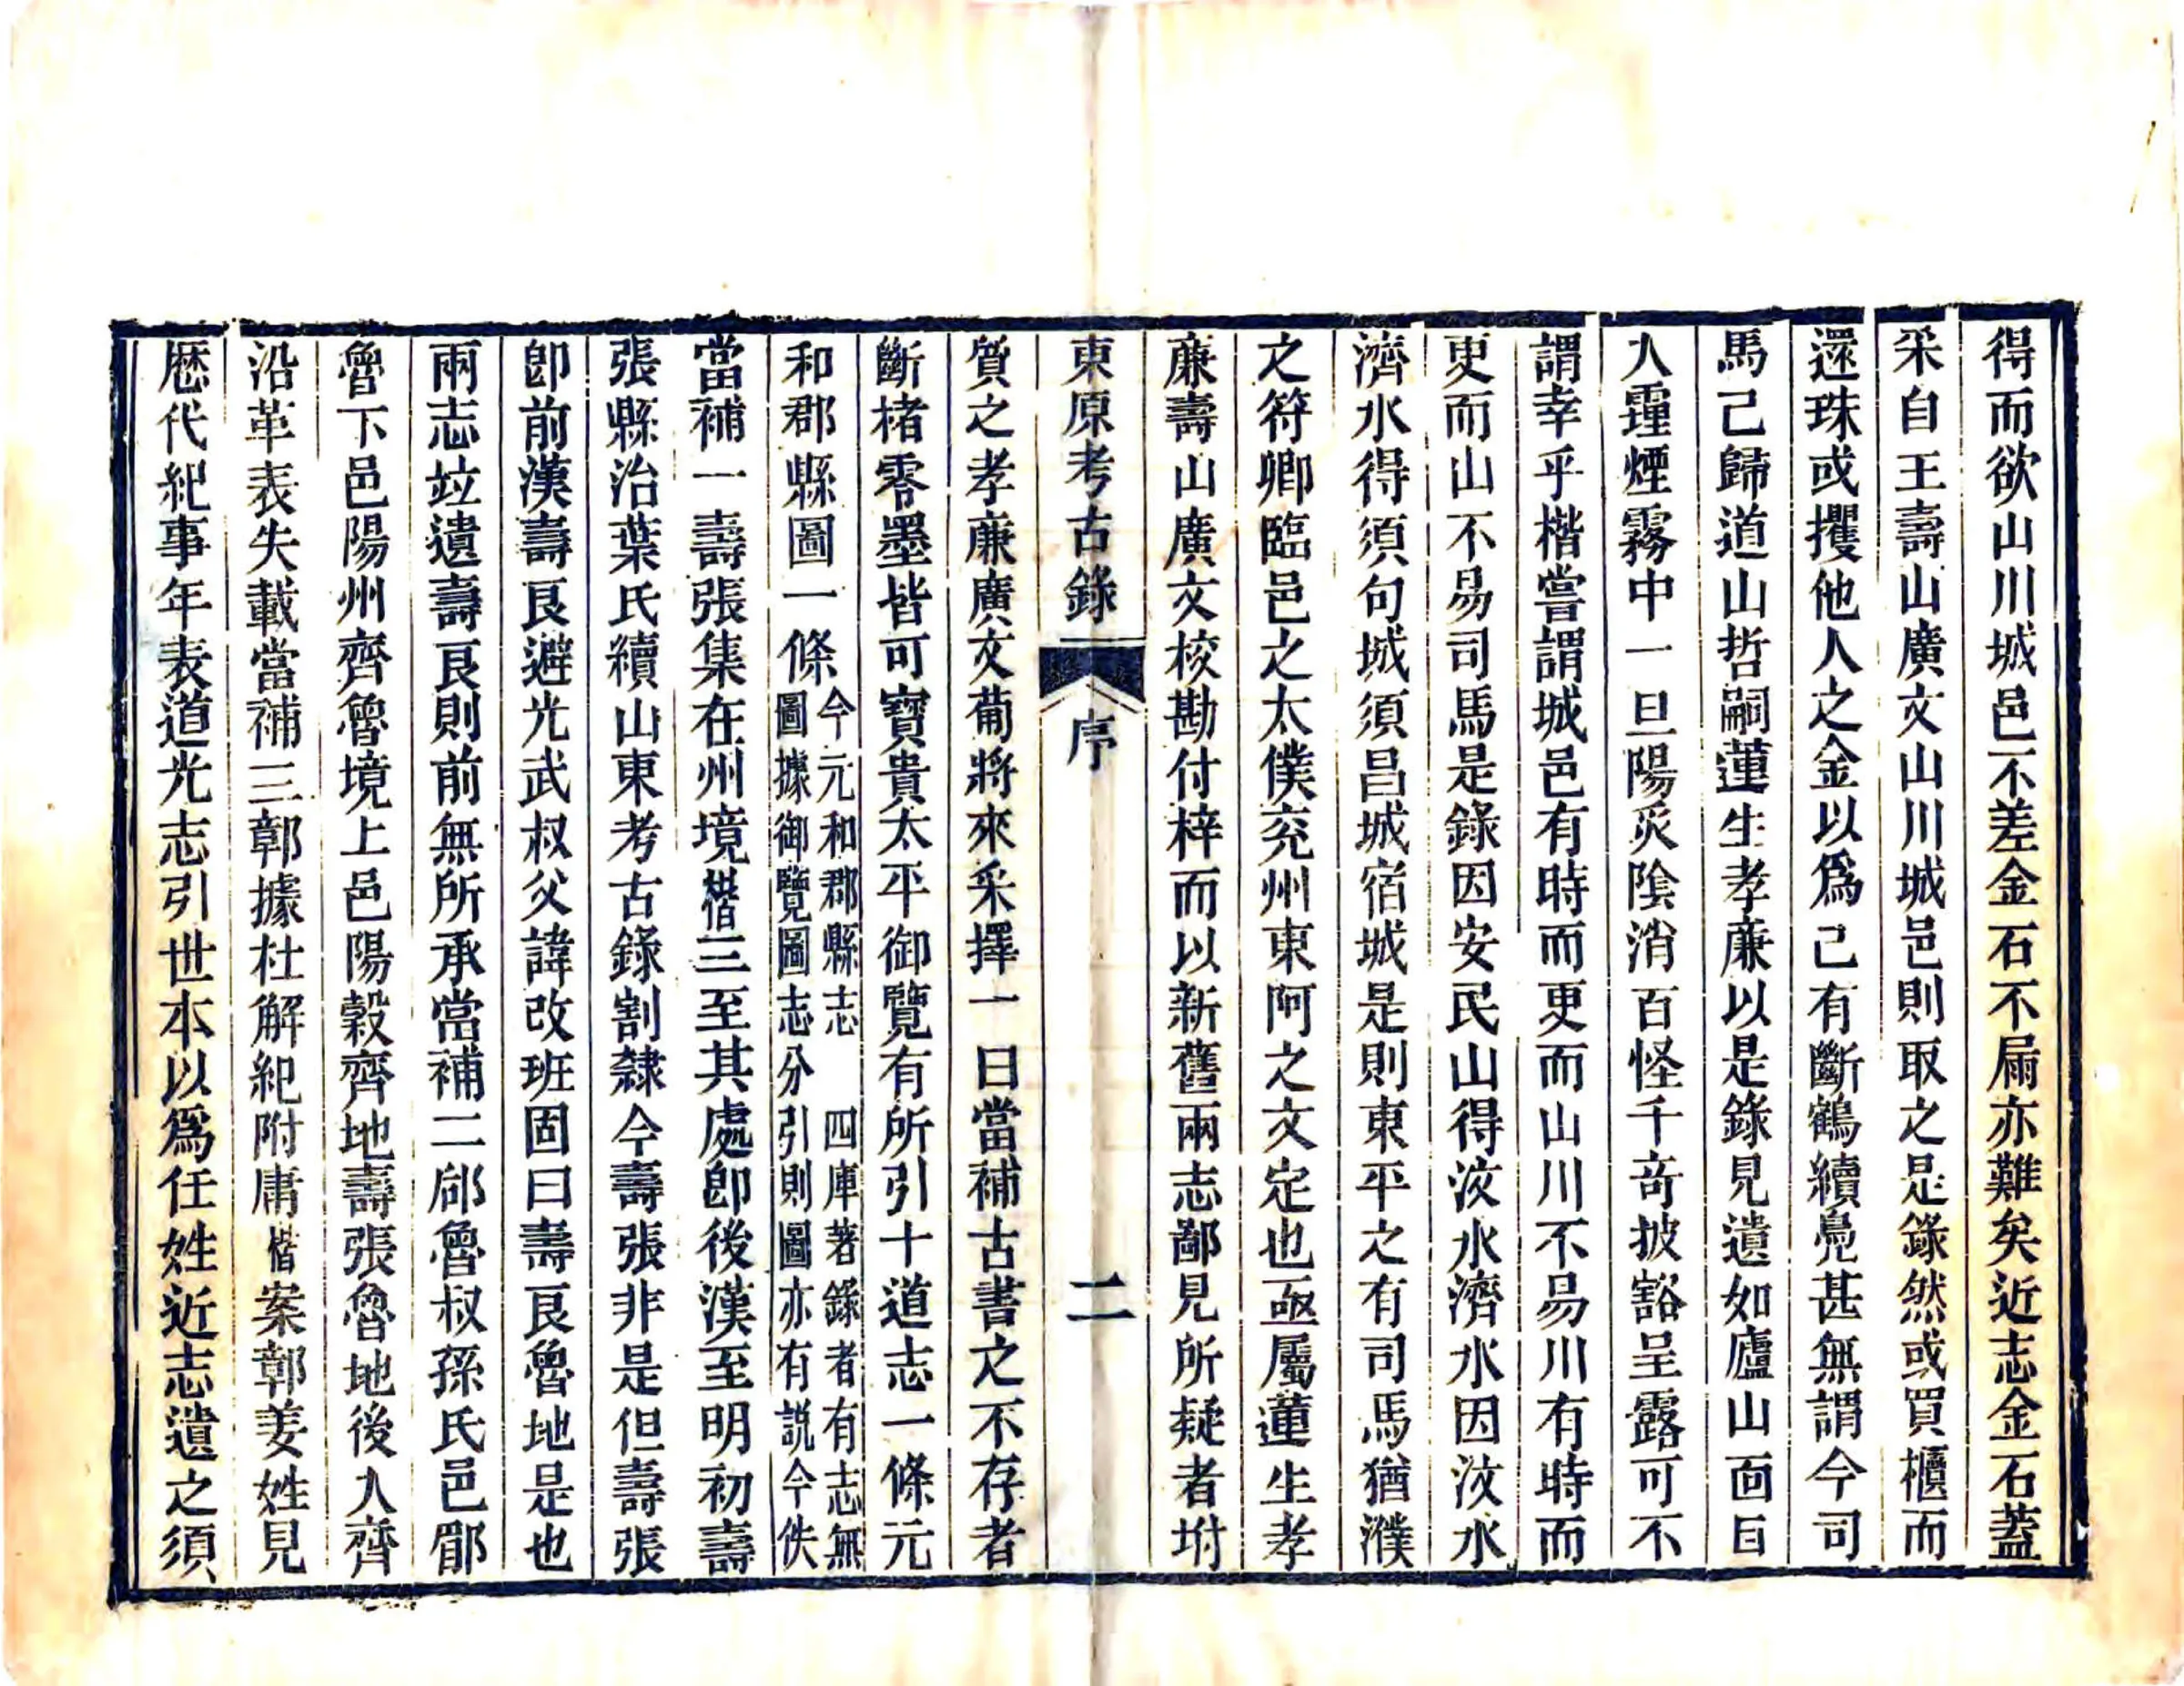 得而欲山川城邑不差金石不扇亦難矣近志金石蓋
采自王壽山廣文山川城邑則取之是錄然或買櫃而
還珠或攫他人之金以爲己有斷鶴續鳧甚無謂今司
馬已歸道山哲嗣蓮生孝廉以是錄見遺如廬山面目
久霾煙霧中一旦陽災陰消百怪千奇披豁呈露可不
謂幸乎楷嘗謂城邑有時而更而山川不易川有時而
更而山不易司馬是錄因安民山得汶水濟水因汶水
濟水得須句城須昌城宿城是則東平之有司馬猶濮
之符卿臨邑之太僕兖州東阿之文定也亟屬蓮生孝
廉壽山廣文校勘付梓而以新舊兩志鄙見所疑者坿
東原考古錄 序 二
質之孝廉廣文葡將來采擇一曰當補古書之不存者
斷楮零墨皆可寶貴太平御覽有所引十道志一條元
和郡縣圖一條今元和郡縣志 四庫著錄者有志無
圖據御覽圖志分引則圖亦有說今佚
當補一壽張集在州境楷三至其處卽後漢至明初壽
張縣治葉氏續山東考古錄割隸今壽張非是但壽張
卽前漢壽良避光武叔父諱改班固曰壽良魯地是也
兩志竝遺壽良則前無所承當補二郈魯叔孫氏邑郿
魯下邑陽州齊魯境上邑陽穀齊地壽張魯地後入齊
沿革表失載當補三鄣據杜解紀附庸楷案鄣姜姓見
厯代紀事年表道光志引世本以爲任姓近志遺之須